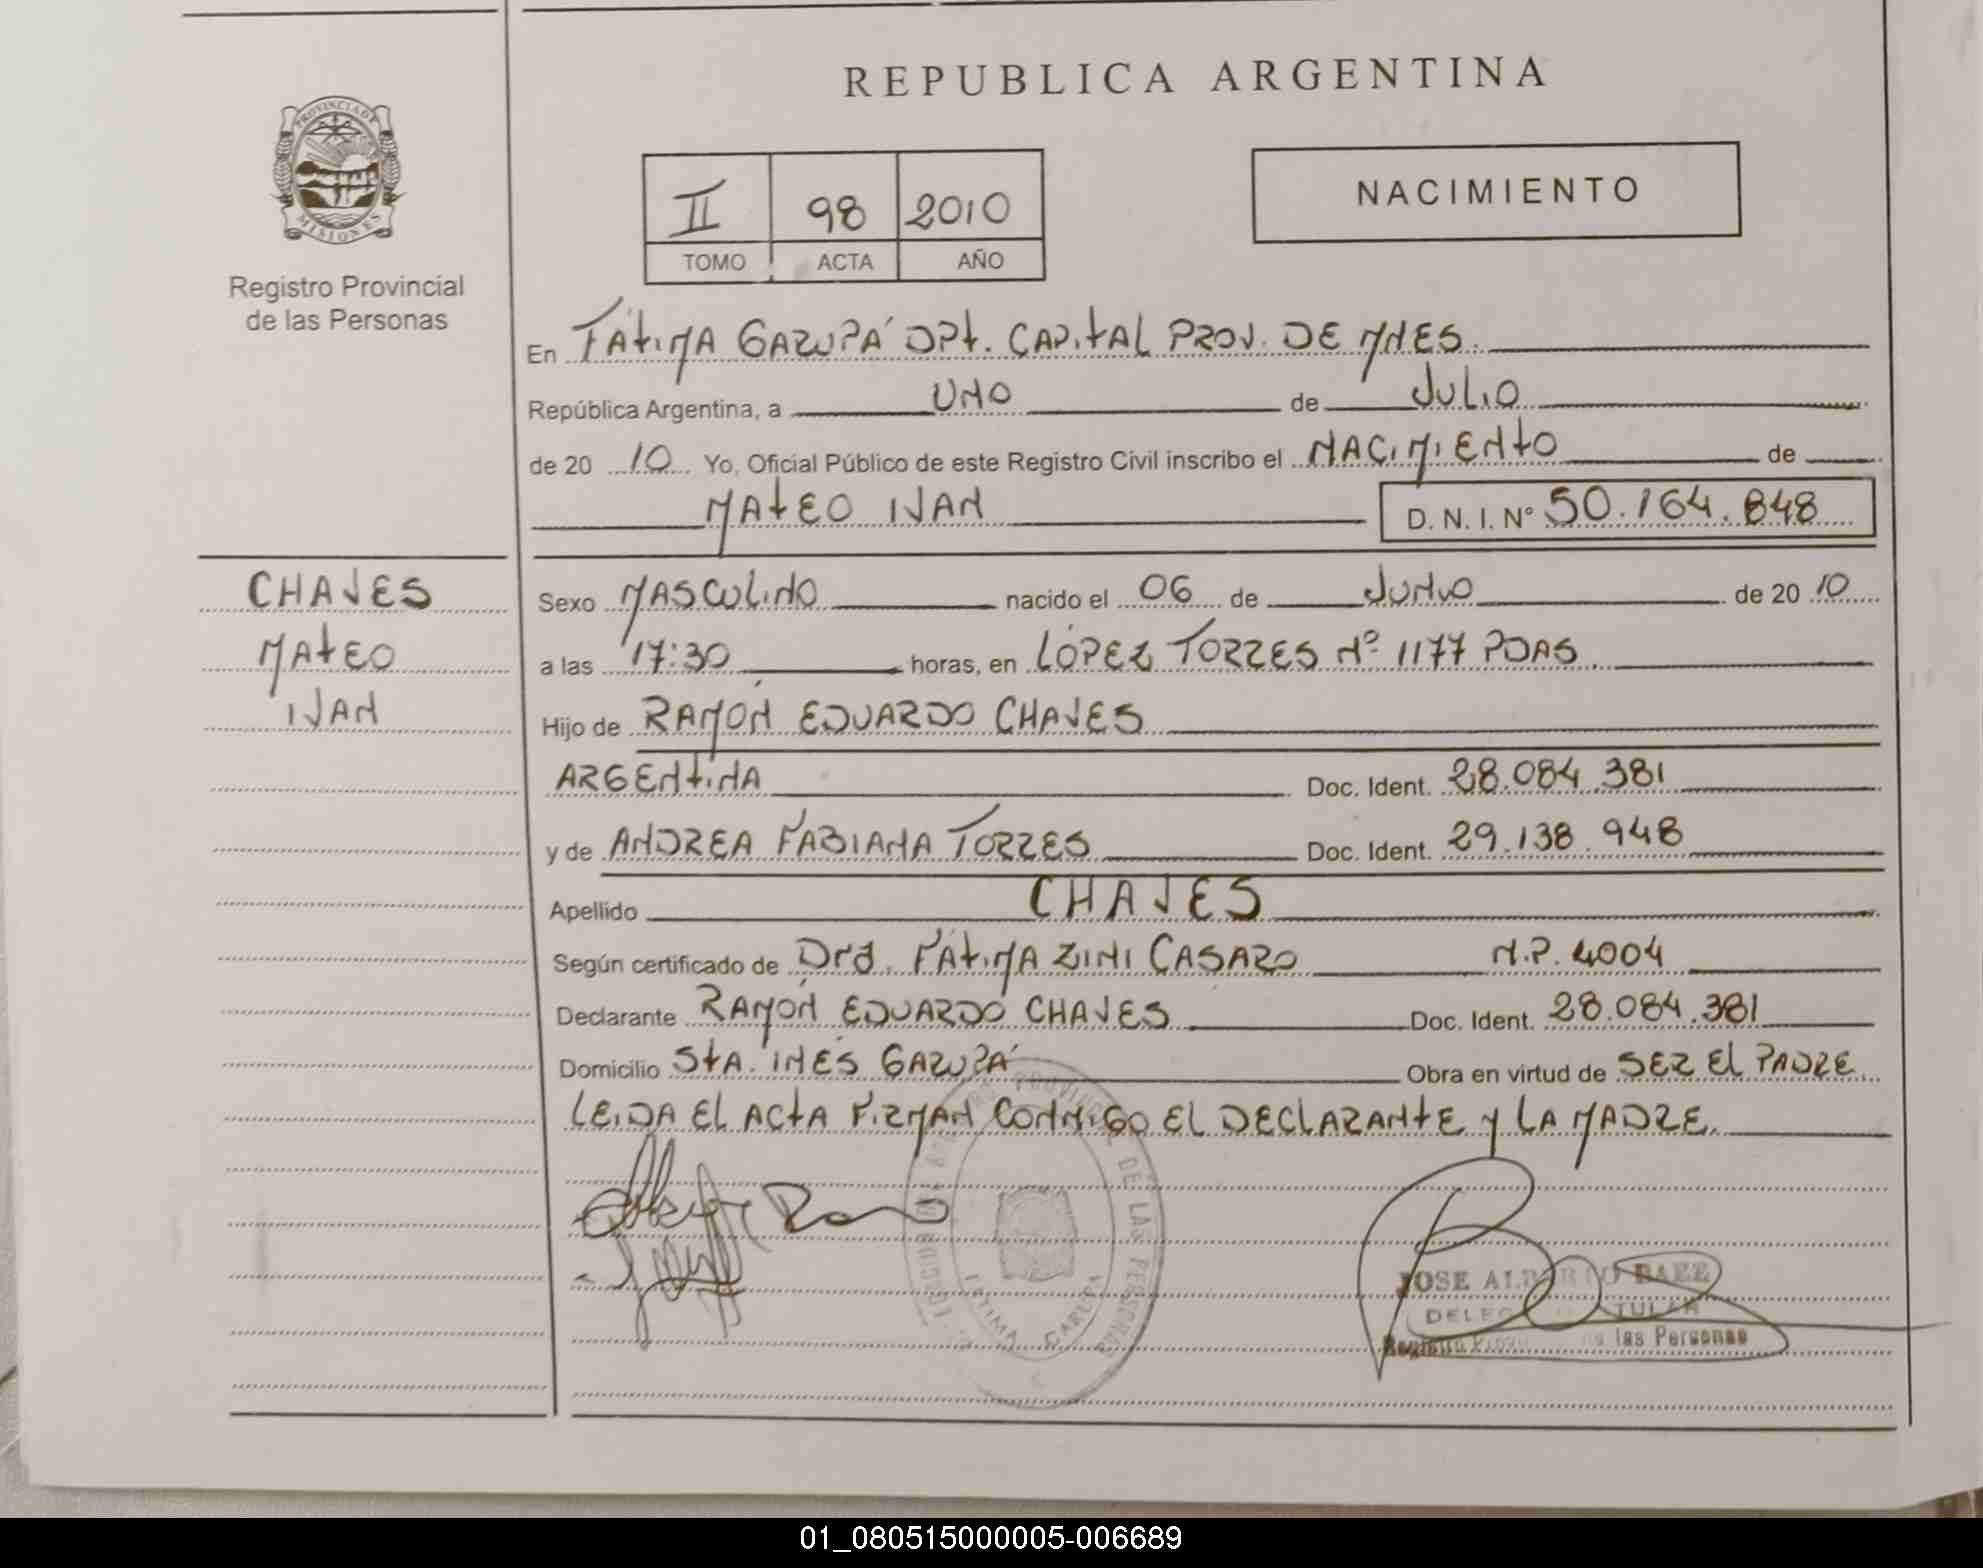 REPUBLICA ARGENTINA
PROVINCIA DE
MISIONES
Registro Provincial
de las Personas
II 98 2010
TOMO ACTA AÑO
NACIMIENTO
En FÁTIMA GARUPÁ DPT. CAPITAL PROV. DE MNES.
República Argentina, a UNO de JULIO
de 20 10 Yo, Oficial Público de este Registro Civil inscribo el NACIMIENTO de
MATEO IVAN D. N. I. Nº 50.164.848
CHAVES
MATEO
IVAN
Sexo MASCULINO nacido el 06 de JUNIO de 20 10
a las 17:30 horas, en LÓPEZ TORRES Nº 1177 PDAS
Hijo de RAMÓN EDUARDO CHAVES
ARGENTINA Doc. Ident. 28.084.381
y de ANDREA FABIANA TORRES Doc. Ident. 29.138.948
Apellido CHAVES
Según certificado de Dra. FÁTIMA ZINI CASARO M.P. 4004
Declarante RAMÓN EDUARDO CHAVES Doc. Ident. 28.084.381
Domicilio STA. INÉS GARUPÁ Obra en virtud de SER EL PADRE
LEIDA EL ACTA FIRMAN CONMIGO EL DECLARANTE Y LA MADRE.
DE LAS PERSONAS
FATIMA GARUPA
JOSE ALBERTO BAEZ
TITULAR
las Personas
01_080515000005-006689